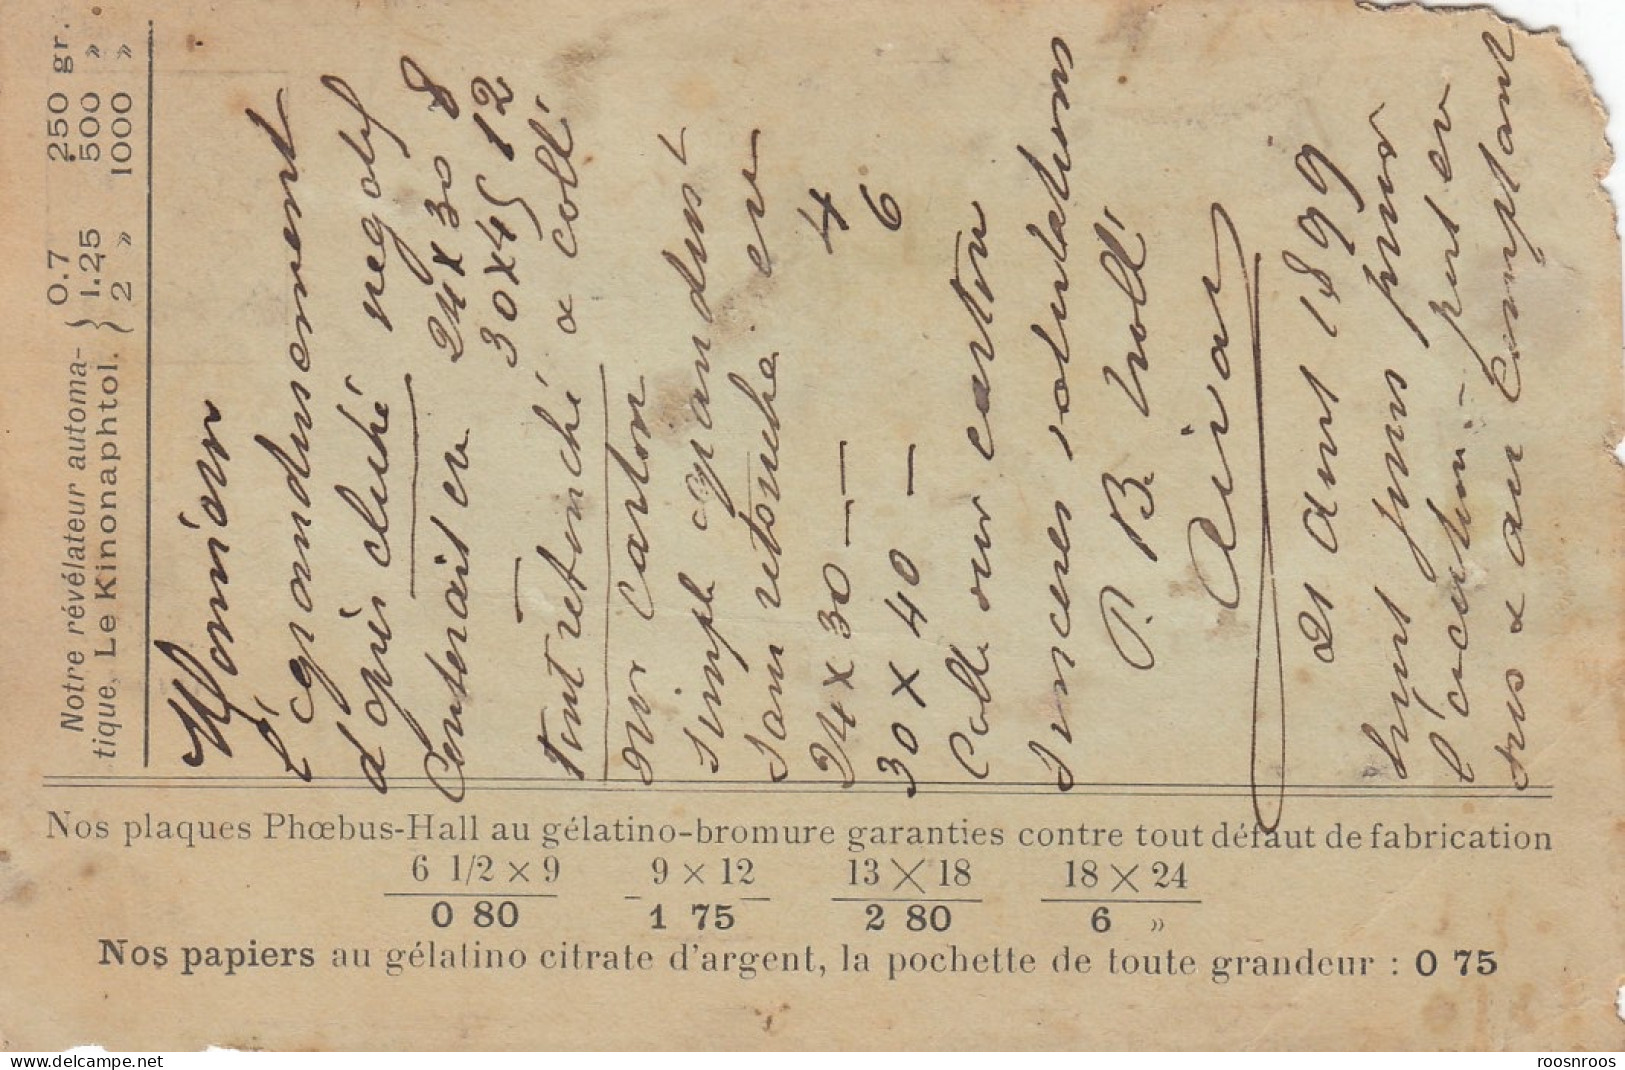 Notre révélateur automa-
tique, Le Kinonaphtol.
0.7 250 gr.
1.25 500 »
2 » 1000 »
Monsieur
agrandissement
d'après cliché negatif
24 x 30 8
30 x 45 12
tout retouché & collé
sur carton
simple agrandist
sans retouche en
24 x 30 — — 4
30 x 40 — 6
Collé sur carton
sinceres salutations
P. B.
21 Aout 1899
huit jours pour
l'
& au comptant
Nos plaques Phœbus-Hall au gélatino-bromure garanties contre tout défaut de fabrication
6 1/2 × 9 9 × 12 13 × 18 18 × 24
0 80 1 75 2 80 6 »
Nos papiers au gélatino citrate d'argent, la pochette de toute grandeur : 0 75
www.delcampe.net
roosnroos